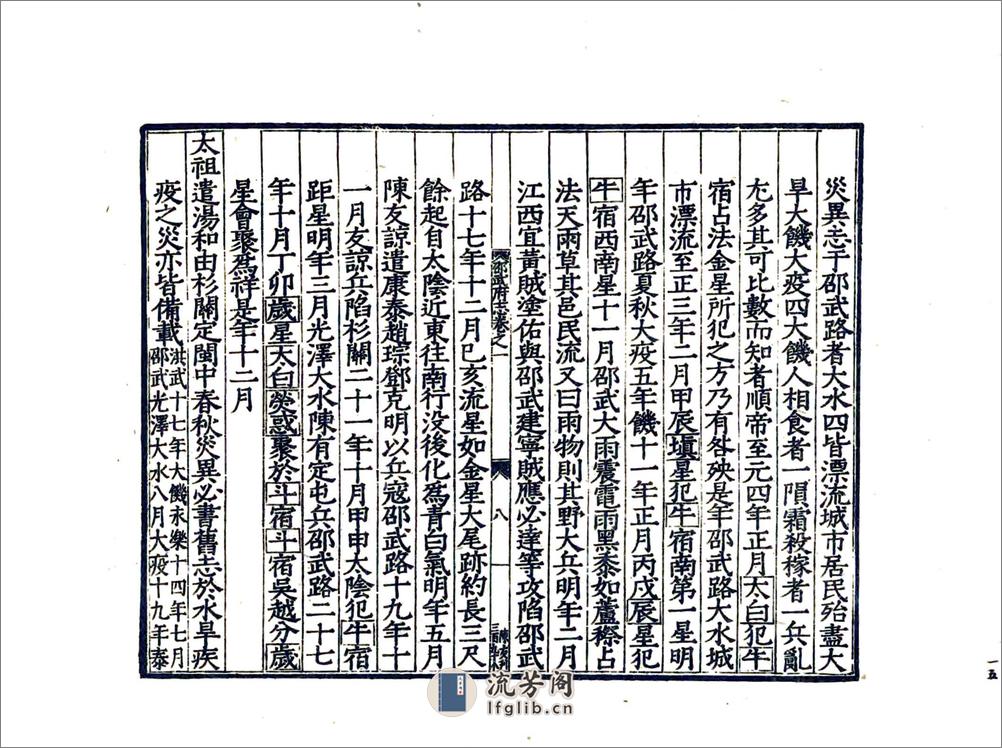 災異志于邵武路者大水四皆漂流城市居民殆盡大
旱大饑大疫四大饑人相食者一隕霜殺稼者一兵亂
尤多其可比數而知者順帝至元四年正月太白犯牛
宿占法金星所犯之方乃有咎殃是年邵武路大水城
市漂流至正三年二月甲辰塡星犯牛宿南第一星明
年邵武路夏秋大疫五年饑十一年正月丙戌辰星犯
牛宿西南星十一月邵武大雨震電雨黑黍如蘆穄占
法天雨草其邑民流又曰雨物則其野大兵明年二月
江西宜黃賊塗佑與邵武建寧賊應必達等攻陷邵武
邵武府志卷之一
八
路十七年十二月己亥流星如金星大尾跡約長三尺
餘起自太陰近東往南行没後化爲青白氣明年五月
陳友諒遣康泰趙琮鄧克明以兵寇邵武路十九年十
一月友諒兵陷杉關二十一年十月甲申太陰犯牛宿
距星明年三月光澤大水陳有定屯兵邵武路二十七
年十月丁卯歲星太白熒惑聚於斗宿斗宿吳越分歲
星會聚爲祥是年十二月
太祖遣湯和由杉關定閩中春秋災異必書舊志於水旱疾
疫之災亦皆備載洪武十七年大饑永樂十四年七月
邵武光澤大水八月大疫十九年泰
一五
流芳阁
lfglib.cn